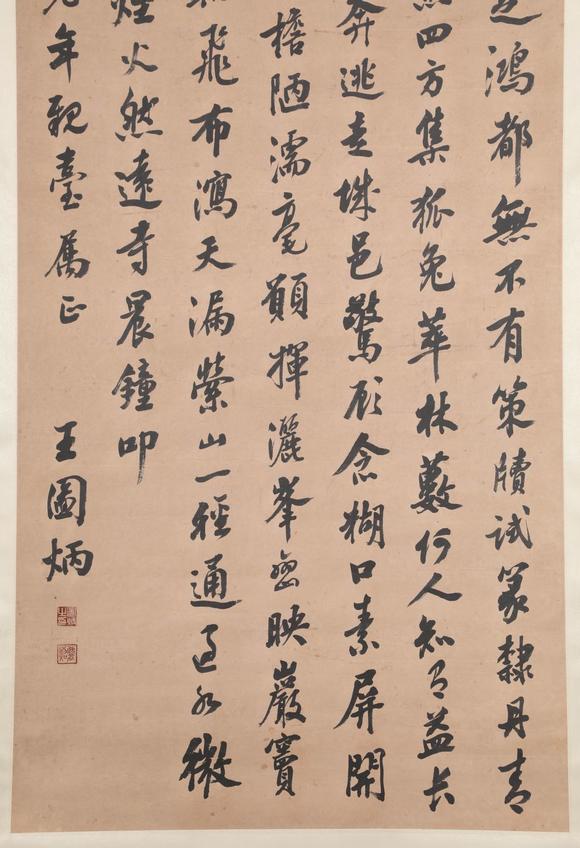 鴻都無不有策牘試篆隸丹青
四方集狐兔萃林藪何人知有益長
奔逃走城邑驚顧念糊口素屏開
檐陋濡毫顛揮灑峯巒映巖竇
飛布瀉天漏縈山一徑通過水微
煙火然遠寺晨鐘叩
年親臺屬正 王圖炳